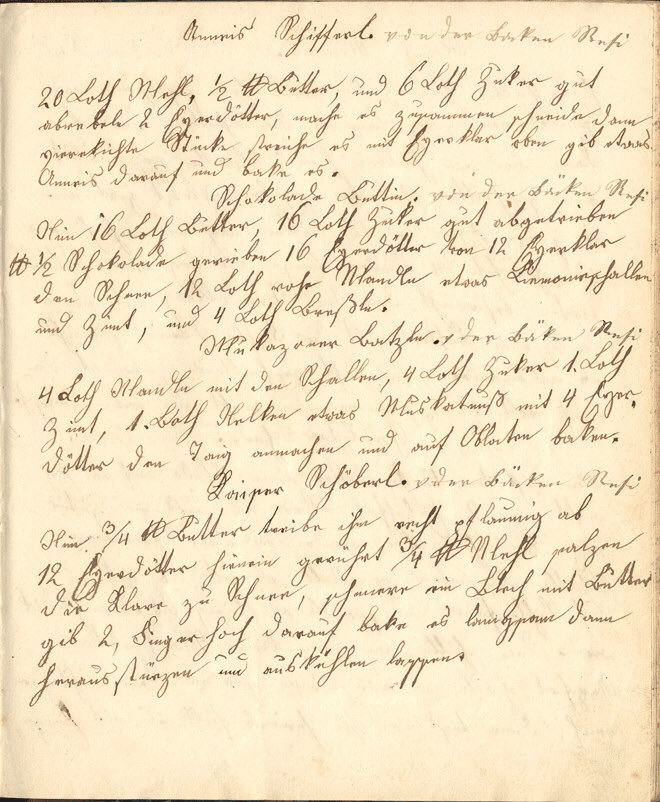 Anneis Schifferl. von der Bäcken Resi
20 Loth Mehl, 1/2 ℔ Butter, und 6 Loth Zuker gut
abrebele 2 Eyerdötter, mache es zusammen schneide dann
vierekichte Stücke streiche es mit Eyerklar oben gib etwas
Anneis darauf und bake es.
Schokolade Buttin. von der Bäcken Resi
Nim 16 Loth Butter, 16 Loth Zuker gut abgetrieben
℔ 1/2 Schokolade gerieben 16 Eyerdötter von 12 Eyerklar
den Schnee, 12 Loth rohe Mandln etwas Limonieschallen
und Zimt, und 4 Loth Breßln.
Batzln. v der Bäken Resi
4 Loth Mandln mit den Schallen, 4 Loth Zuker 1. Loth
Zimt, 1. Loth Nelken etwas Muskatnuß mit 4 Eyer-
dötter den Taig anmachen und auf Oblaten baken.
Kaiser Schöberl. v der Bäcken Resi
Nim 3/4 ℔ Butter treibe ihn recht pflaumig ab
12 Eyerdötter hinein gerührt 3/4 ℔ Mehl salzen
die Klare zu Schnee, schmere ein Blech mit Butter
gib 2, Finger hoch darauf bake es langsam dann
herausstürzen und auskühlen lassen.